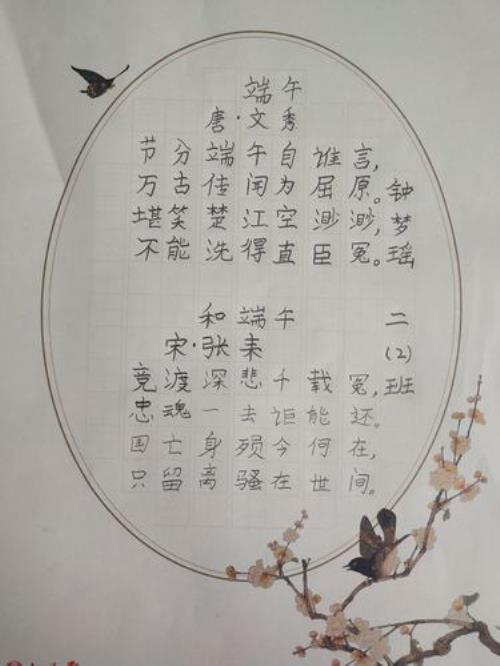 端午
唐·文秀
节分端午自谁言,
万古传闻为屈原。
堪笑楚江空渺渺,
不能洗得直臣冤。
和端午
宋·张耒
竞渡深悲千载冤,
忠魂一去讵能还。
国亡身殒今何在,
只留离骚在世间。
钟梦瑶 二(2)班